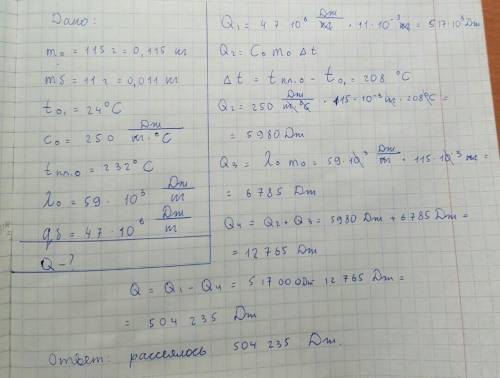 Дано:
m₀ = 115 г = 0,115 кг
mб = 11 г = 0,011 кг
t₀₁ = 24°C
c₀ = 250 Дж/кг·°C
tпл.о = 232°C
λ₀ = 59 · 10³ Дж/кг
qб = 47 · 10⁶ Дж/кг
Q - ?
Q₁ = 47 · 10⁶ Дж/кг · 11 · 10⁻³ кг = 517 · 10³ Дж
Q₂ = C₀ m₀ Δt
Δt = tпл.о - t₀₁ = 208 °C
Q₂ = 250 Дж/кг·°C · 115 · 10⁻³ кг · 208°C =
= 5980 Дж
Q₃ = λ₀ m₀ = 59 · 10³ Дж/кг · 115 · 10⁻³ кг =
= 6785 Дж
Q₄ = Q₂ + Q₃ = 5980 Дж + 6785 Дж =
= 12765 Дж
Q = Q₁ - Q₄ = 517000 Дж 12765 Дж =
= 504 235 Дж
Ответ: рассеялось 504 235 Дж.